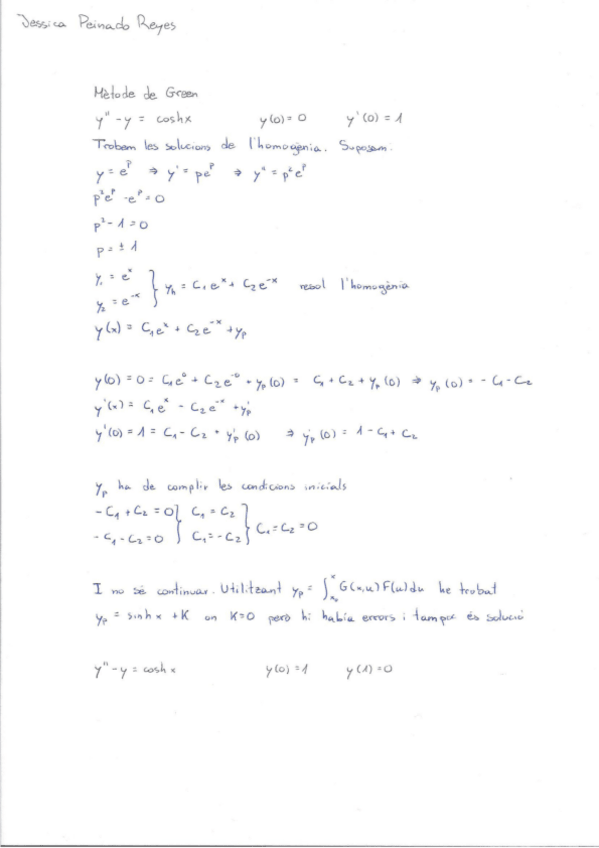 Jessica Peinado Reyes
Mètode de Green
y'' - y = coshx y(0) = 0 y'(0) = 1
Trobem les solucions de l'homogènia. Suposem:
y = e^p ⇒ y' = pe^p ⇒ y'' = p²e^p
p²e^p - e^p = 0
p² - 1 = 0
p = ± 1
y₁ = e^x
y₂ = e^-x } y_h = C₁e^x + C₂e^-x resol l'homogènia
y(x) = C₁e^x + C₂e^-x + y_p
y(0) = 0 = C₁e^0 + C₂e^-0 + y_p(0) = C₁ + C₂ + y_p(0) ⇒ y_p(0) = - C₁ - C₂
y'(x) = C₁e^x - C₂e^-x + y'_p
y'(0) = 1 = C₁ - C₂ + y'_p(0) ⇒ y'_p(0) = 1 - C₁ + C₂
y_p ha de complir les condicions inicials
- C₁ + C₂ = 0 } C₁ = C₂
- C₁ - C₂ = 0 } C₁ = - C₂ } C₁ = C₂ = 0
I no sé continuar. Utilitzant y_p = ∫_{x₀}^x G(x,u) F(u) du he trobat
y_p = sinhx + K on K=0 però hi havia errors i tampoc és solució
y'' - y = coshx y(0) = 1 y(1) = 0